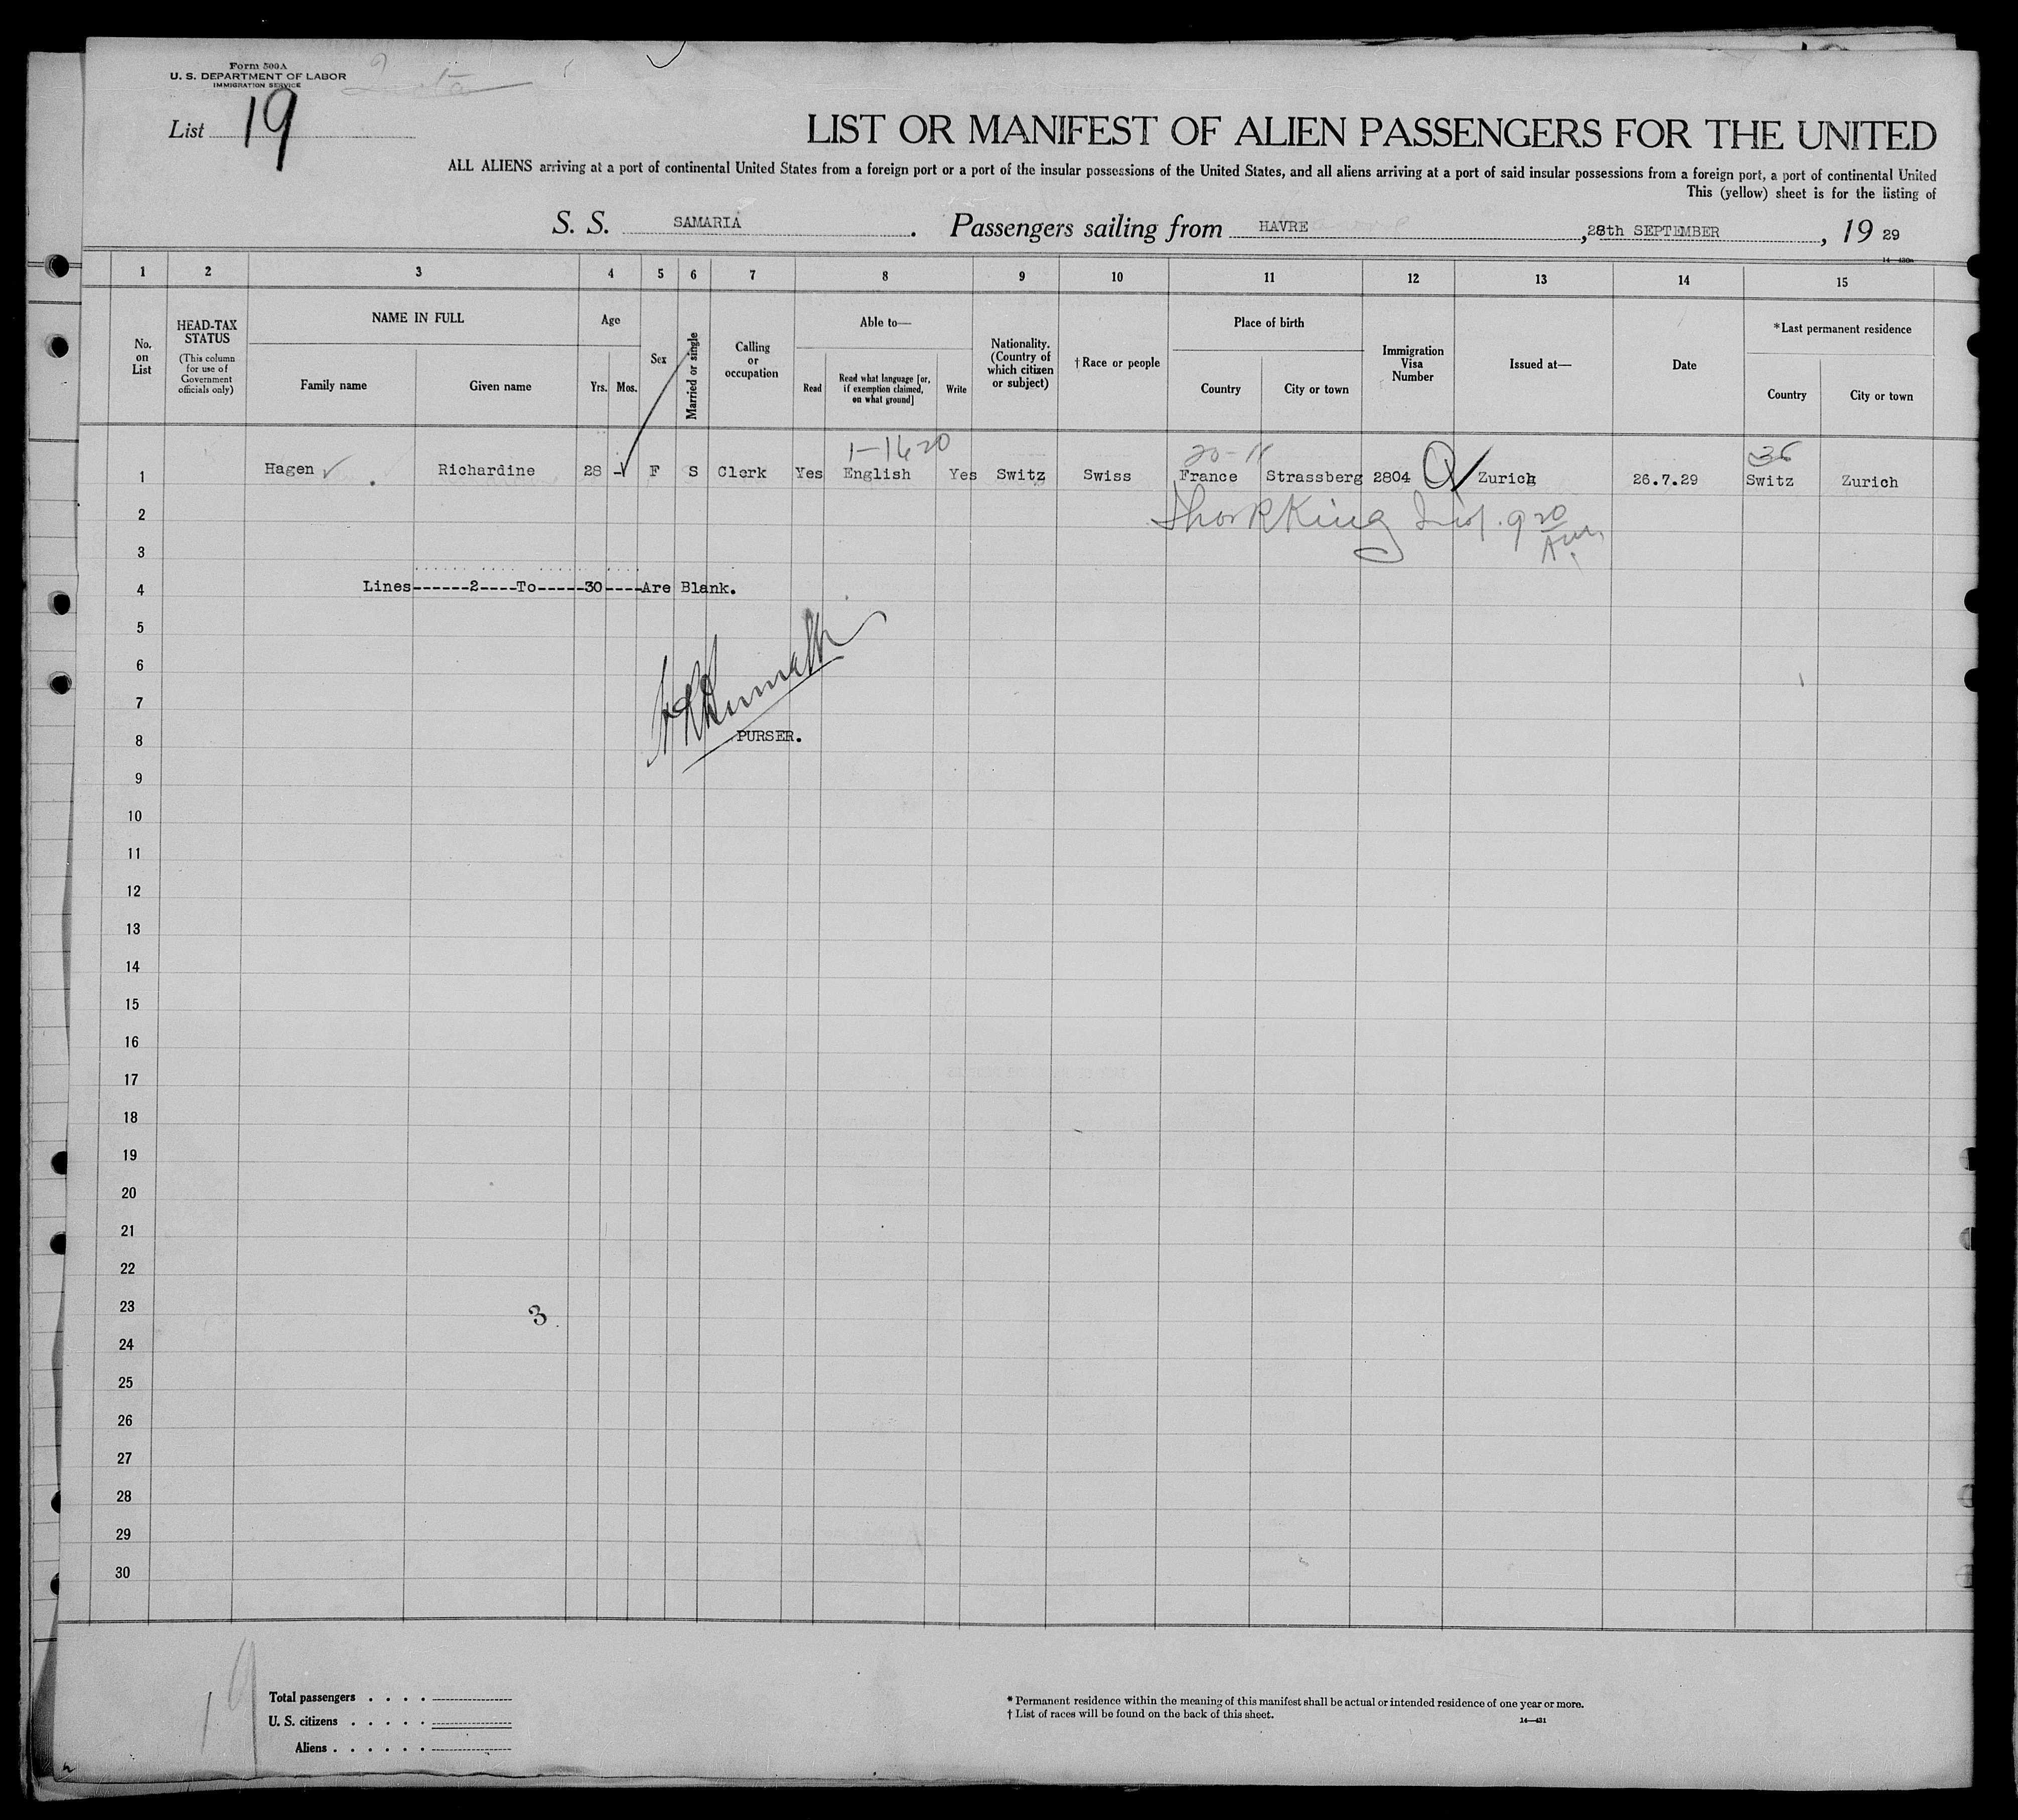 Form 500A
U. S. DEPARTMENT OF LABOR
IMMIGRATION SERVICE
List 19
LIST OR MANIFEST OF ALIEN PASSENGERS FOR THE UNITED
ALL ALIENS arriving at a port of continental United States from a foreign port or a port of the insular possessions of the United States, and all aliens arriving at a port of said insular possessions from a foreign port, a port of continental United
This (yellow) sheet is for the listing of
S. S. SAMARIA. Passengers sailing from HAVRE, 28th SEPTEMBER, 19 29
1 2 3 4 5 6 7 8 9 10 11 12 13 14 15
No. on List
HEAD-TAX STATUS (This column for use of Government officials only)
NAME IN FULL
Family name Given name
Age
Yrs. Mos.
Sex
Married or single
Calling or occupation
Able to—
Read
Read what language [or, if exemption claimed, on what ground]
Write
Nationality. (Country of which citizen or subject)
†Race or people
Place of birth
Country City or town
Immigration Visa Number
Issued at—
Date
*Last permanent residence
Country City or town
1 Hagen Richardine 28 - F S Clerk Yes English Yes Switz Swiss France Strassberg 2804 Q Zurich 26.7.29 Switz Zurich
2
3
4 Lines------2----To-----30----Are Blank.
5
6
7
8 PURSER.
9
10
11
12
13
14
15
16
17
18
19
20
21
22
23 3
24
25
26
27
28
29
30
19
Total passengers . . . .
U. S. citizens . . . . .
Aliens . . . . . .
* Permanent residence within the meaning of this manifest shall be actual or intended residence of one year or more.
† List of races will be found on the back of this sheet.
14—431